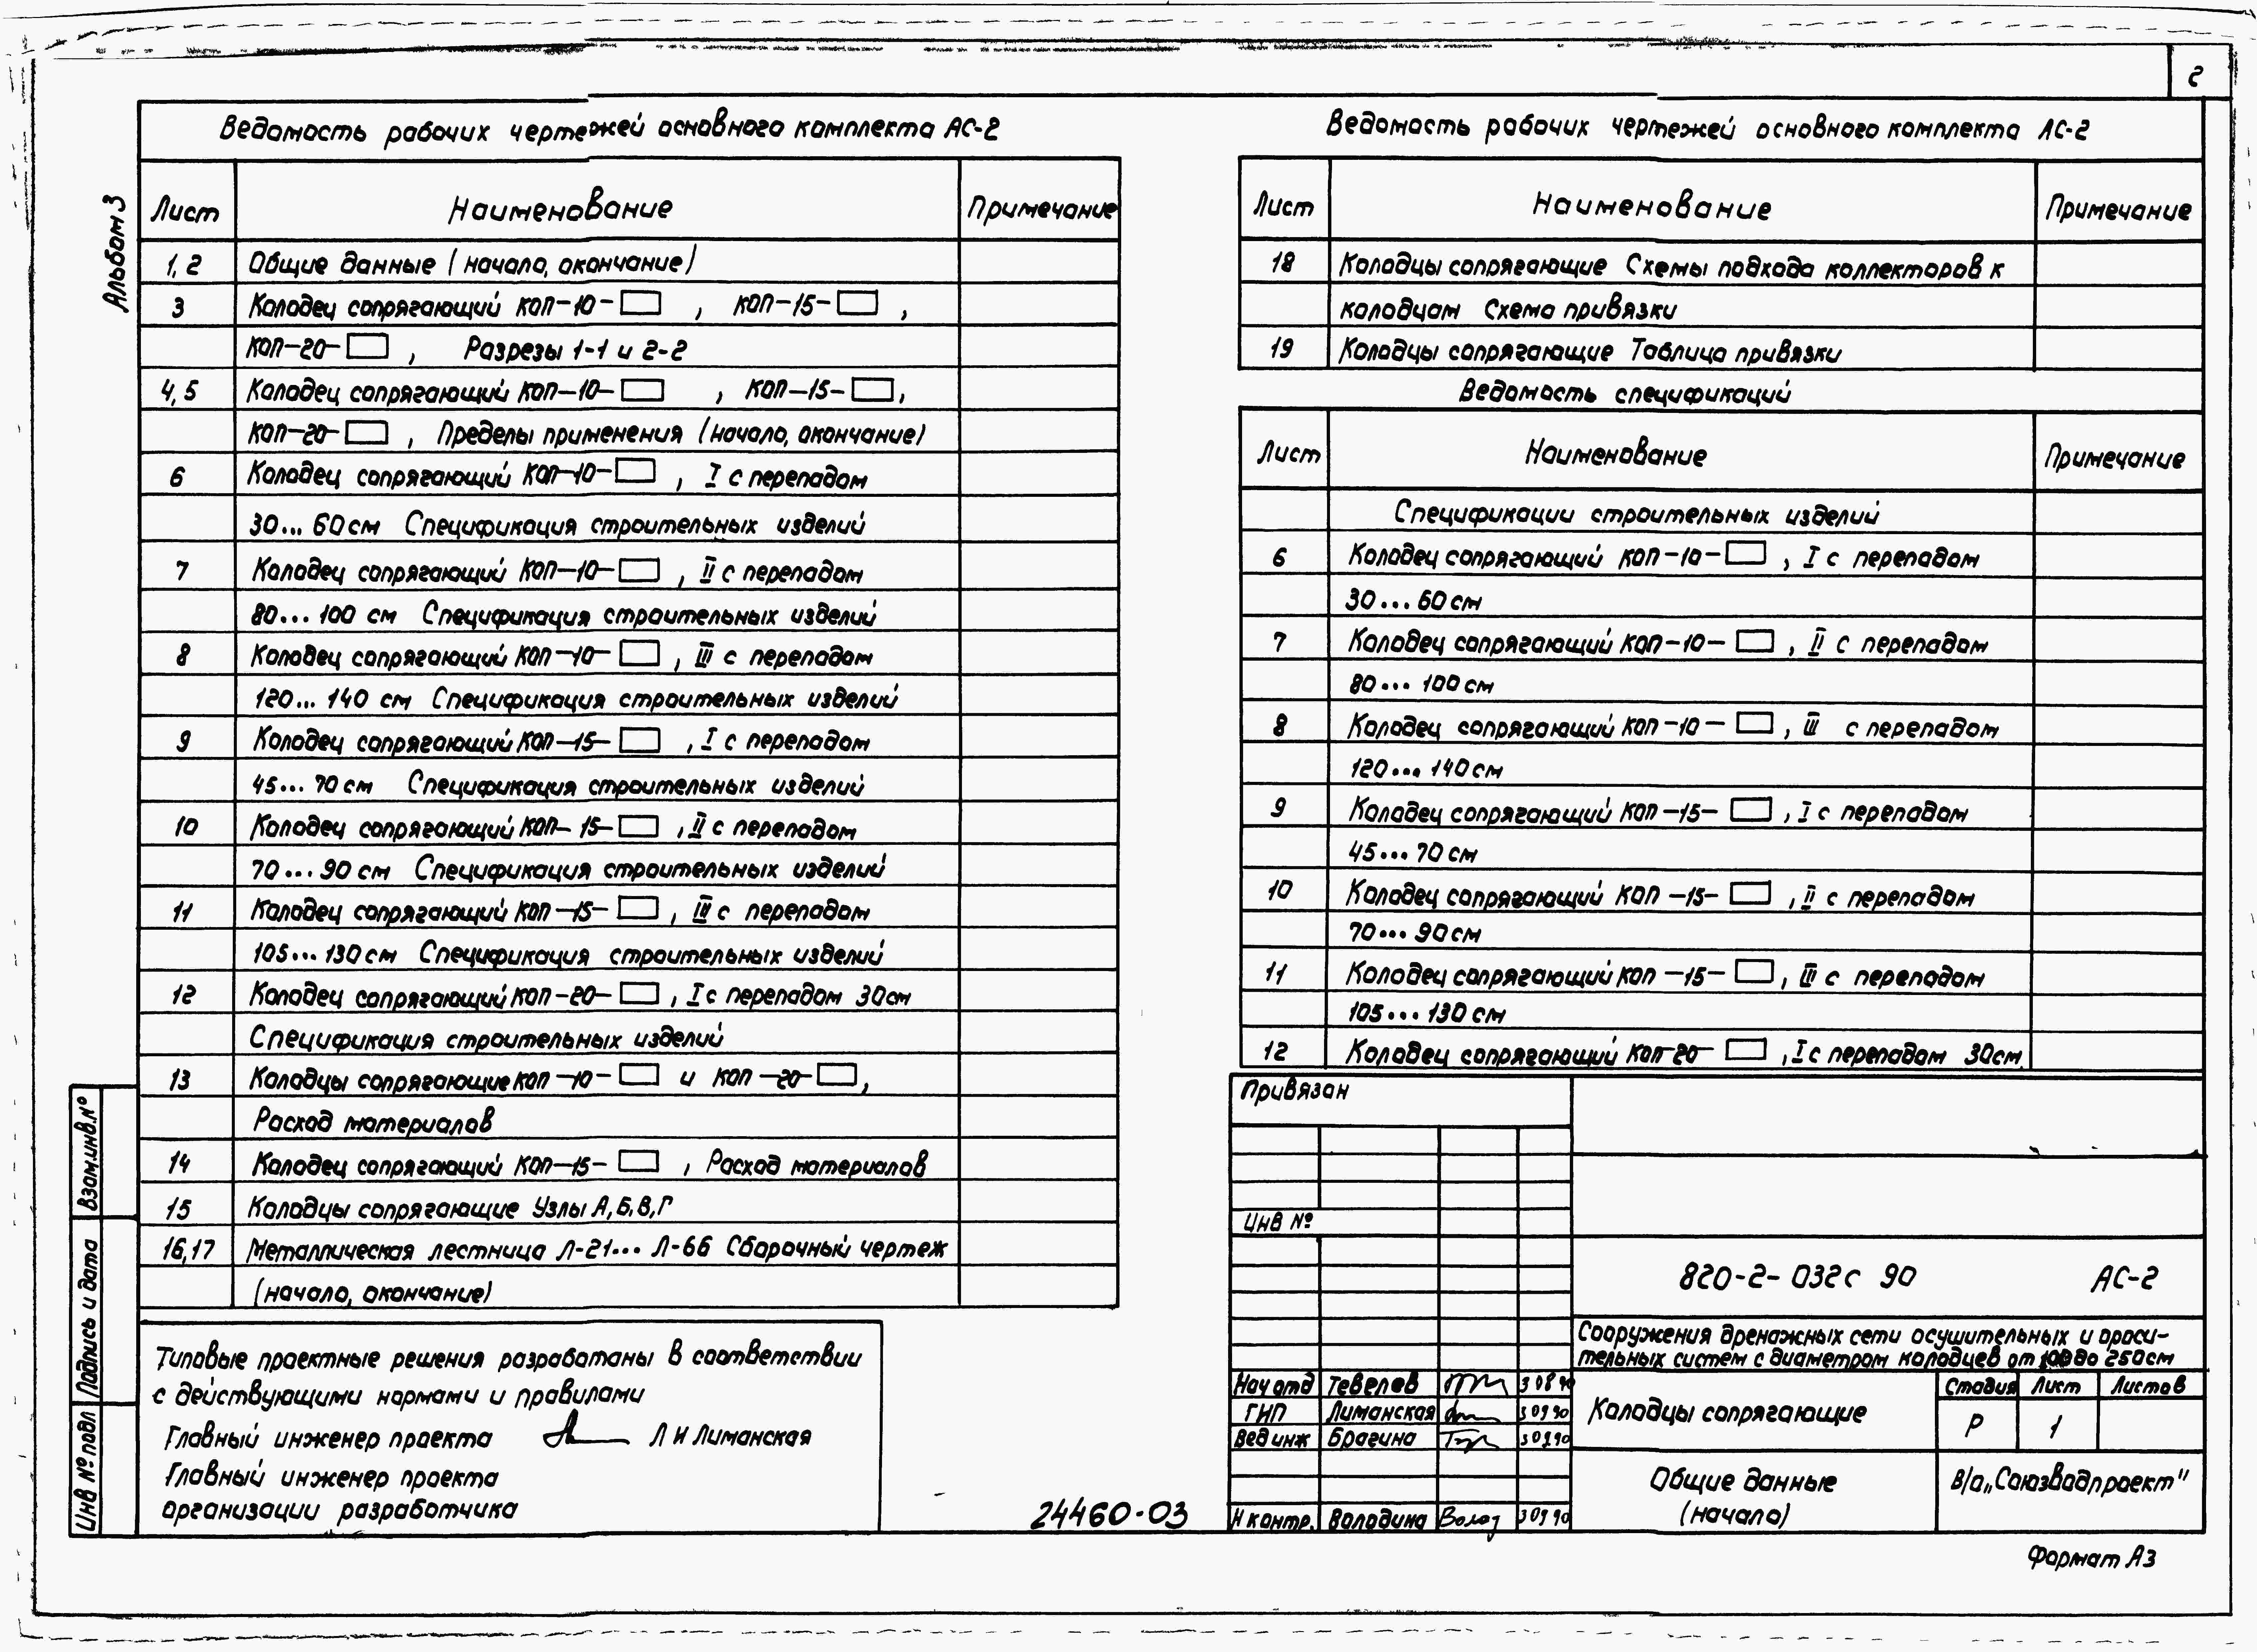 2
Альбом 3
Ведомость рабочих чертежей основного комплекта АС-2
Лист Наименование Примечание
1,2 Общие данные (начало, окончание)
3 Колодец сопрягающий КОП-10-▭ , КОП-15-▭ ,
КОП-20-▭ , Разрезы 1-1 и 2-2
4,5 Колодец сопрягающий КОП-10-▭ , КОП-15-▭ ,
КОП-20-▭ , Пределы применения (начало, окончание)
6 Колодец сопрягающий КОП-10-▭ , I с перепадом
30...60 см Спецификация строительных изделий
7 Колодец сопрягающий КОП-10-▭ , II с перепадом
80...100 см Спецификация строительных изделий
8 Колодец сопрягающий КОП-10-▭ , III с перепадом
120...140 см Спецификация строительных изделий
9 Колодец сопрягающий КОП-15-▭ , I с перепадом
45...70 см Спецификация строительных изделий
10 Колодец сопрягающий КОП-15-▭ , II с перепадом
70...90 см Спецификация строительных изделий
11 Колодец сопрягающий КОП-15-▭ , III с перепадом
105...130 см Спецификация строительных изделий
12 Колодец сопрягающий КОП-20-▭ , I с перепадом 30см
Спецификация строительных изделий
13 Колодцы сопрягающие КОП-10-▭ и КОП-20-▭ ,
Расход материалов
14 Колодец сопрягающий КОП-15-▭ , Расход материалов
15 Колодцы сопрягающие Узлы А,Б,В,Г
16,17 Металлическая лестница Л-21... Л-66 Сборочный чертеж
(начало, окончание)
Типовые проектные решения разработаны в соответствии
с действующими нормами и правилами
Главный инженер проекта Л И Лиманская
Главный инженер проекта
организации разработчика
Взам.инв.№
Подпись и дата
Инв № подл
24460-03
Ведомость рабочих чертежей основного комплекта АС-2
Лист Наименование Примечание
18 Колодцы сопрягающие Схемы подхода коллекторов к
колодцам Схема привязки
19 Колодцы сопрягающие Таблица привязки
Ведомость спецификаций
Лист Наименование Примечание
Спецификации строительных изделий
6 Колодец сопрягающий КОП-10-▭ , I с перепадом
30...60 см
7 Колодец сопрягающий КОП-10-▭ , II с перепадом
80...100 см
8 Колодец сопрягающий КОП-10-▭ , III с перепадом
120...140 см
9 Колодец сопрягающий КОП-15-▭ , I с перепадом
45...70 см
10 Колодец сопрягающий КОП-15-▭ , II с перепадом
70...90 см
11 Колодец сопрягающий КОП-15-▭ , III с перепадом
105...130 см
12 Колодец сопрягающий КОП-20-▭ , I с перепадом 30см.
Привязан
ИНВ №
820-2-032с 90 АС-2
Сооружения дренажных сети осушительных и ороси-
тельных систем с диаметром колодцев от 100 до 250см
Нач отд Тевелев
ГИП Лиманская
Вед инж Брагина
Н контр. Володина Волод
Колодцы сопрягающие
Стадия Лист Листов
Р 1
Общие данные
(начало)
В/о „Союзводпроект"
Формат А3